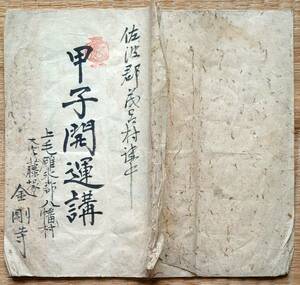 佐波郡茂呂村講中
甲子開運講
上毛碓氷郡八幡村
大字藤塚
金剛寺